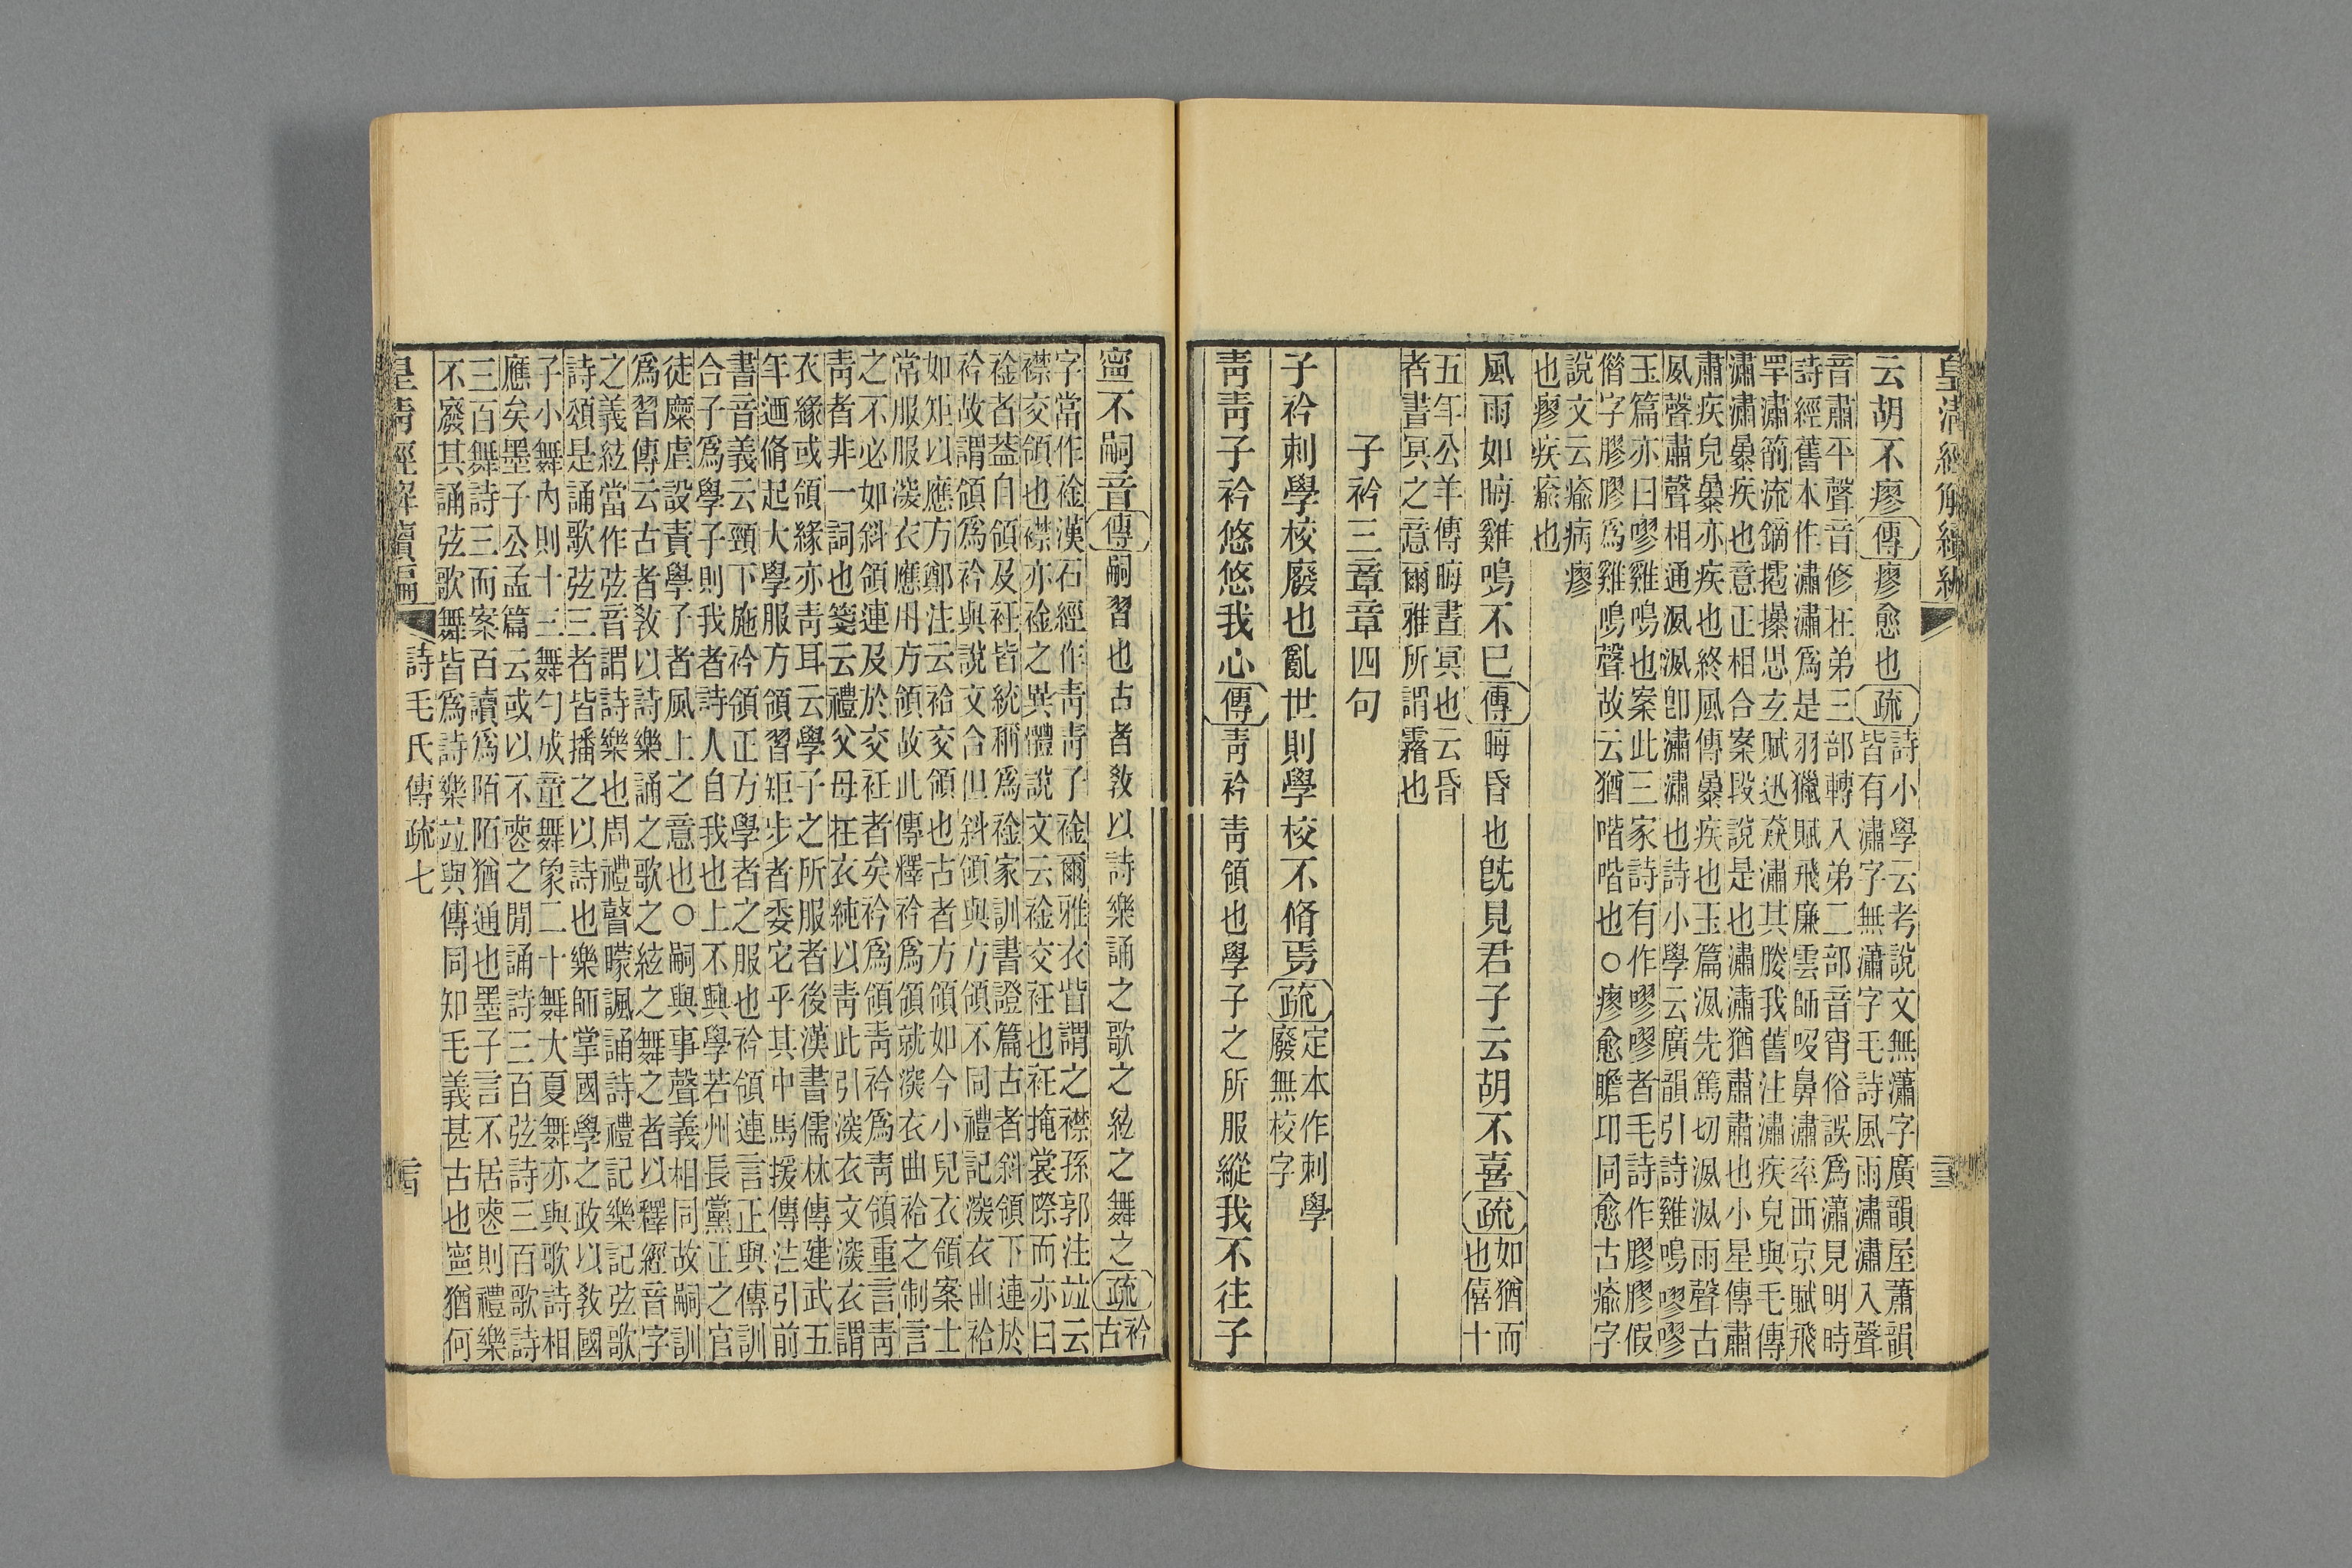 皇清經解續編
云胡不瘳傳瘳愈也疏
詩小學云考說文無瀟字廣韻屋蕭韻
皆有潚字無瀟字毛詩風雨潚潚入聲
音肅平聲音修在弟三部轉入弟二部音宵俗誤爲瀟見明時
詩經舊本作潚潚爲是羽獵賦飛廉雲師吸鼻潚率西京賦飛
罕潚箾流鏑㩧思玄賦迅猋潚其媵我舊注潚疾皃與毛傳
潚潚暴疾也意正相合案段說是也潚潚猶肅肅也小星傳肅
肅疾皃暴亦疾也終風傳暴疾也玉篇㴋先篤切㴋㴋雨聲古
夙聲肅聲相通㴋㴋卽潚潚也詩小學云廣韻引詩雞鳴嘐嘐
玉篇亦曰嘐雞鳴也案此三家詩有作嘐嘐者毛詩作膠膠假
僣字膠膠爲雞鳴聲故云猶喈喈也○瘳愈瞻卬同愈古瘉字
說文云瘉病瘳
也瘳疾瘉也
風雨如晦雞鳴不已傳晦昏也旣見君子云胡不喜疏
如猶而
也僖十
五年公羊傳晦晝冥也云昏
者晝冥之意爾雅所謂霿也
子衿三章章四句
子衿刺學校廢也亂世則學校不脩焉疏
定本作刺學
廢無校字
靑靑子衿悠悠我心傳靑衿靑領也學子之所服縱我不往子
寧不嗣音傳嗣習也古者敎以詩樂誦之歌之絃之舞之疏
衿
古
字當作䘳漢石經作靑靑子䘳爾雅衣眥謂之襟孫郭注竝云
襟交領也襟亦䘳之異體說文云䘳交衽也衽掩裳際而亦曰
䘳者蓋自領及衽皆統稱爲䘳家訓書證篇古者斜領下連於
衿故謂領爲衿與說文合但斜領與方領不同禮記深衣曲袷
如矩以應方鄭注云袷交領也古者方領如今小兒衣領案士
常服服深衣應用方領故此傳釋衿爲領就深衣曲袷之制言
之不必如斜領連及於交衽者矣衿爲領靑衿爲靑領重言靑
靑者非一詞也箋云禮父母在衣純以靑此引深衣文深衣謂
衣緣或領緣亦靑耳云學子之所服者後漢書儒林傳建武五
年迺脩起大學服方領習矩步者委它乎其中馬援傳注引前
書音義云頸下施衿領正方學者之服也衿領連言正與傳訓
合子爲學子則我者詩人自我也上不興學若州長黨正之官
徒糜虛設責學子者風上之意也○嗣與事聲義相同故嗣訓
爲習傳云古者敎以詩樂誦之歌之絃之舞之者以釋經音字
之義絃當作弦音謂詩樂也周禮瞽矇諷誦詩禮記樂記弦歌
詩頌是誦歌弦三者皆播之以詩也樂師掌國學之政以敎國
子小舞內則十三舞勺成童舞象二十舞大夏舞亦與歌詩相
應矣墨子公孟篇云或以不喪之閒誦詩三百弦詩三百歌詩
三百舞詩三而案百讀爲陌陌猶通也墨子言不居喪則禮樂
不廢其誦弦歌舞皆爲詩樂竝與傳同知毛義甚古也寧猶何
皇淸經解續編
詩毛氏傳疏七